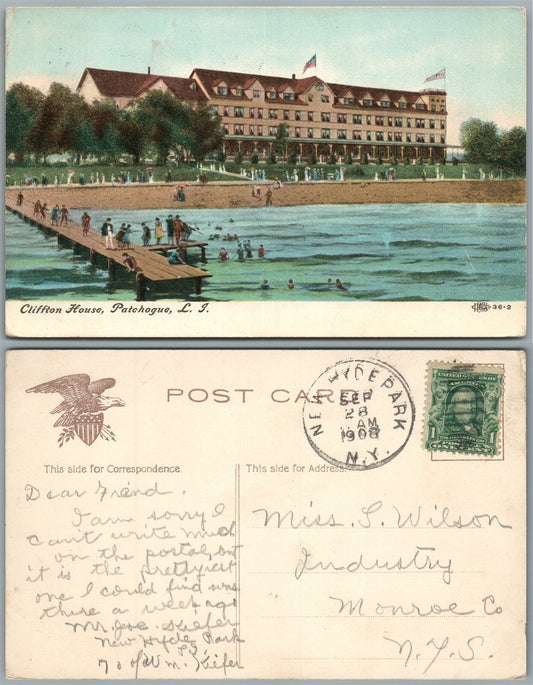 Cliffton House, Patchogue, L. I.
36-2
POST CARD
This side for Correspondence.
This side for Address.
NEW HYDE PARK
SEP
28
AM
1908
N.Y.
1
1
Dear Friend.
I am sorry I
can't write much
on the postal, but
it is the prettyest
one I could find was
there a week ago
Mr. Geo. Kiefer
New Hyde Park
L I
% of Wm. Kiefer
Miss. S. Wilson
Industry
Monroe Co
N.Y.S.